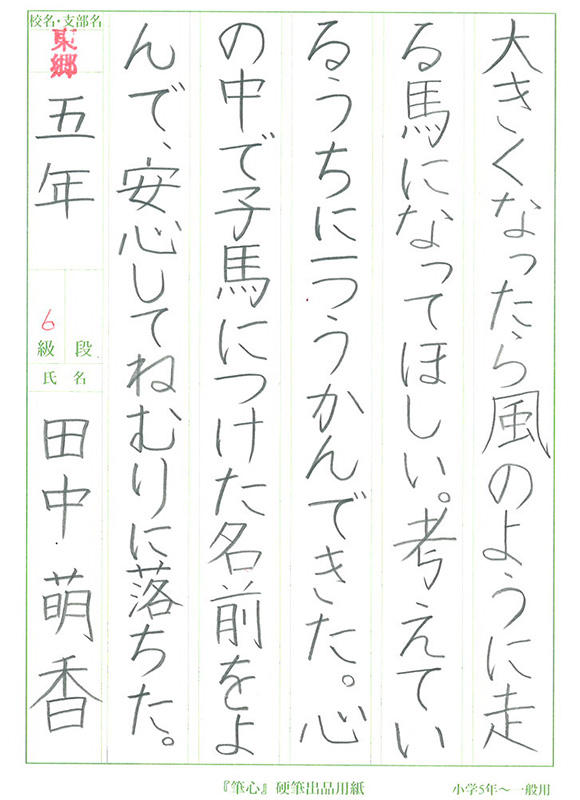 大きくなったら風のように走
る馬になってほしい。考えてい
るうちに一つうかんできた。心
の中で子馬につけた名前をよ
んで、安心してねむりに落ちた。
校名・支部名
東郷
五年
6
級 段
氏名
田中萌香
『筆心』硬筆出品用紙
小学5年〜一般用